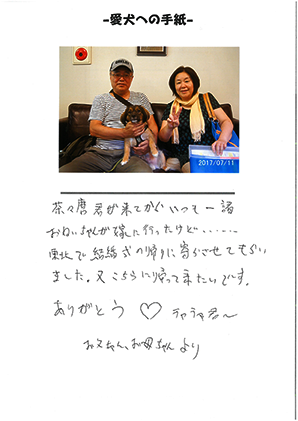 -愛犬への手紙-
2017/07/11
茶々麿君が来てからいつも一諸
おねいちゃんが嫁に行ったけど……
東北で結婚式の帰りに寄らさせてもらい
ました。又こちらに帰って来たいです。
ありがとう ♡ チャチャ君〜
お父ちゃん、お母ちゃんより